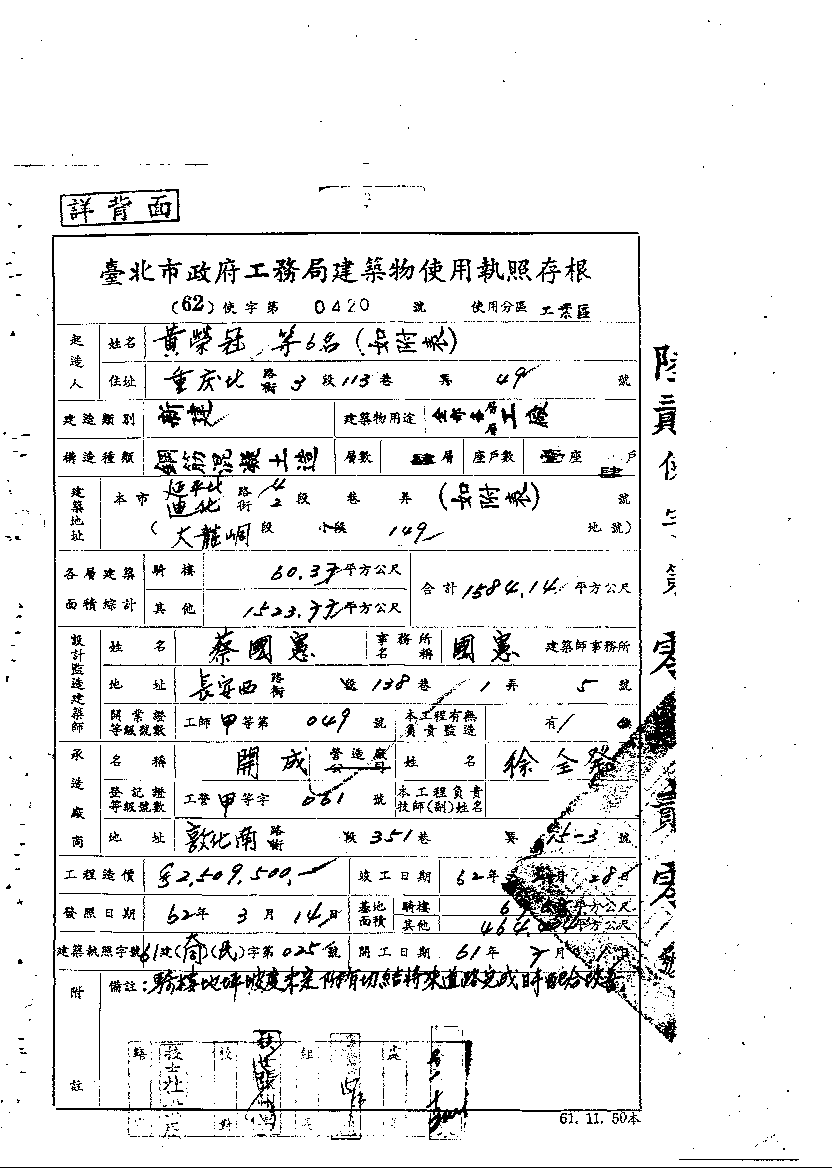 詳背面
臺北市政府工務局建築物使用執照存根
(62) 使字第 0420 號 使用分區 工業區
起造人 姓名 黃榮冠 等6名(如附表)
住址 重庆北 路街 3 段 113 巷 弄 49 號
建造類別 新建 建築物用途 工廠
構造種類 鋼筋混凝土造 層數 肆 層 座戶數 壹 座 肆 戶
建築地址 本市 延平北 迪化 路街 4 2 段 巷 弄 (如附表) 號
(大龍峒 段 小段 149 地號)
各層建築面積綜計 騎樓 60.37 平方公尺 合計 1584.14 平方公尺
其他 1523.77 平方公尺
設計監造建築師 姓名 蔡國憲 事務所名稱 國憲 建築師事務所
地址 長安西 路街 段 138 巷 1 弄 5 號
開業證等級號數 工師 甲 等第 049 號 本工程有無負責監造 有
承造廠商 名稱 開成 營造廠公司 姓名 徐全發
登記證等級號數 工營 甲 等字 061 號 本工程負責技師(副)姓名
地址 敦化南 路街 段 351 巷 弄 號
工程造價 $2,509,500. 竣工日期 62年 月 28日
發照日期 62年 3月 14日 基地面積 騎樓 平方公尺
其他 平方公尺
建築執照字號 61 建()(民)字第 025 號 開工日期 61年 月 日
附註 備註:騎樓地坪坡度未定附有切結將來道路完成時配合改善
61. 11. 50本